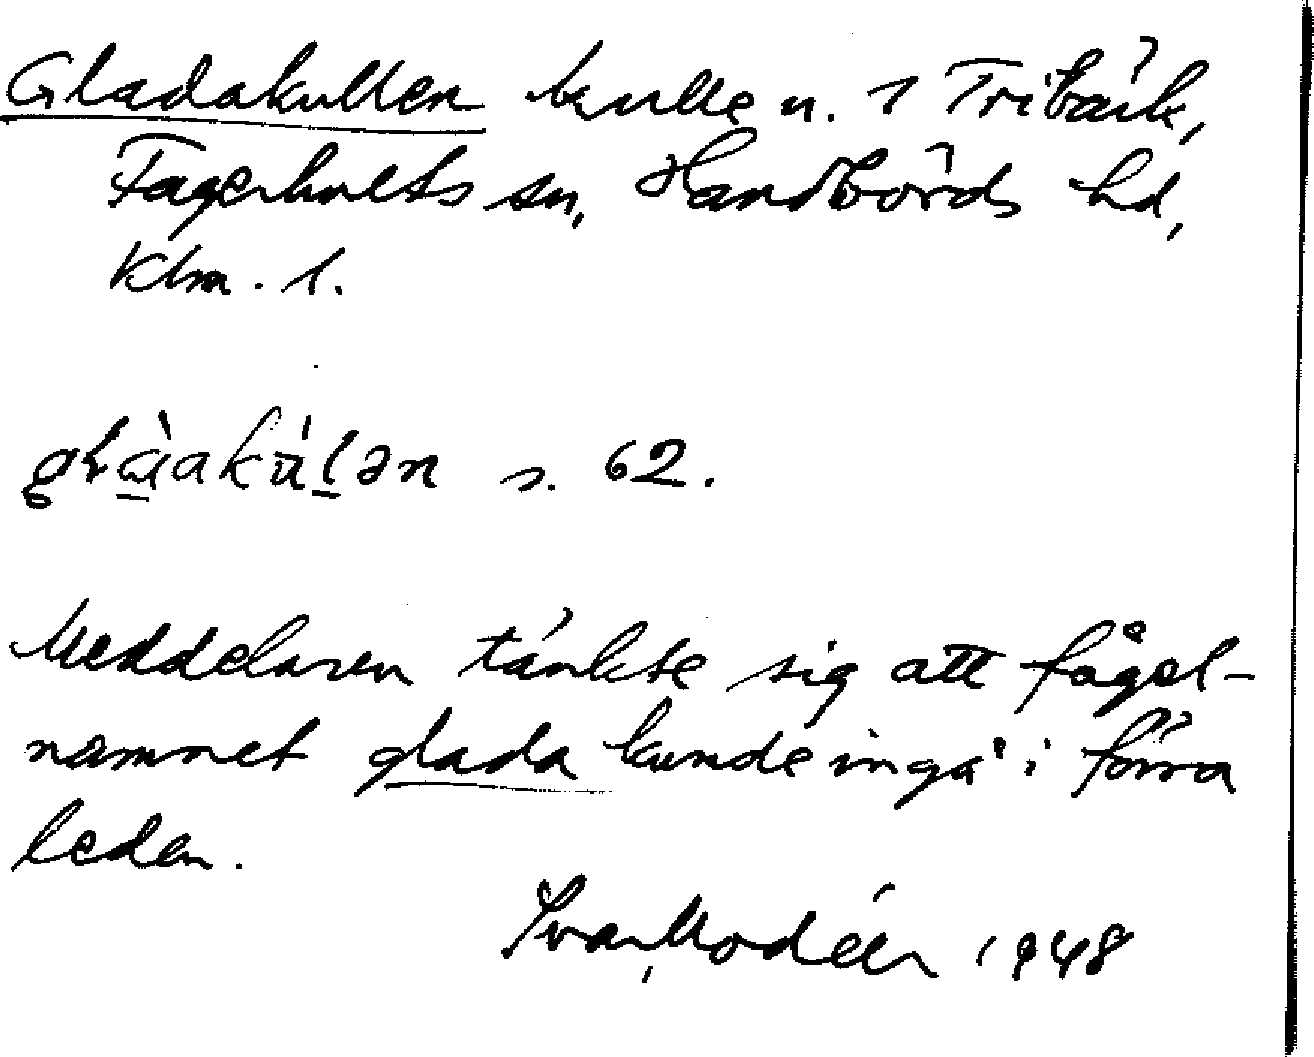 Gladakullen kulle n. 1 Tribäck,
Fagerhults sn, Handbörds hd,
Klm. l.
s. 62.
Meddelaren tänkte sig att fågel-
namnet glada kunde ingå i förra
leden.
Ivar Modéer 1948